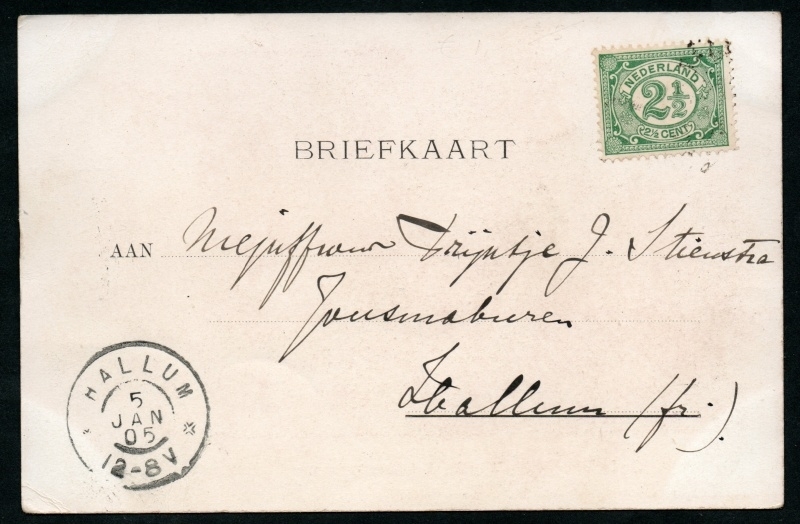 NEDERLAND
2½
2½ CENT
BRIEFKAART
AAN Mejuffrouw Trijntje J. Stienstra
Jousmaburen
Hallum (fr.)
HALLUM
5
JAN
05
12-8V